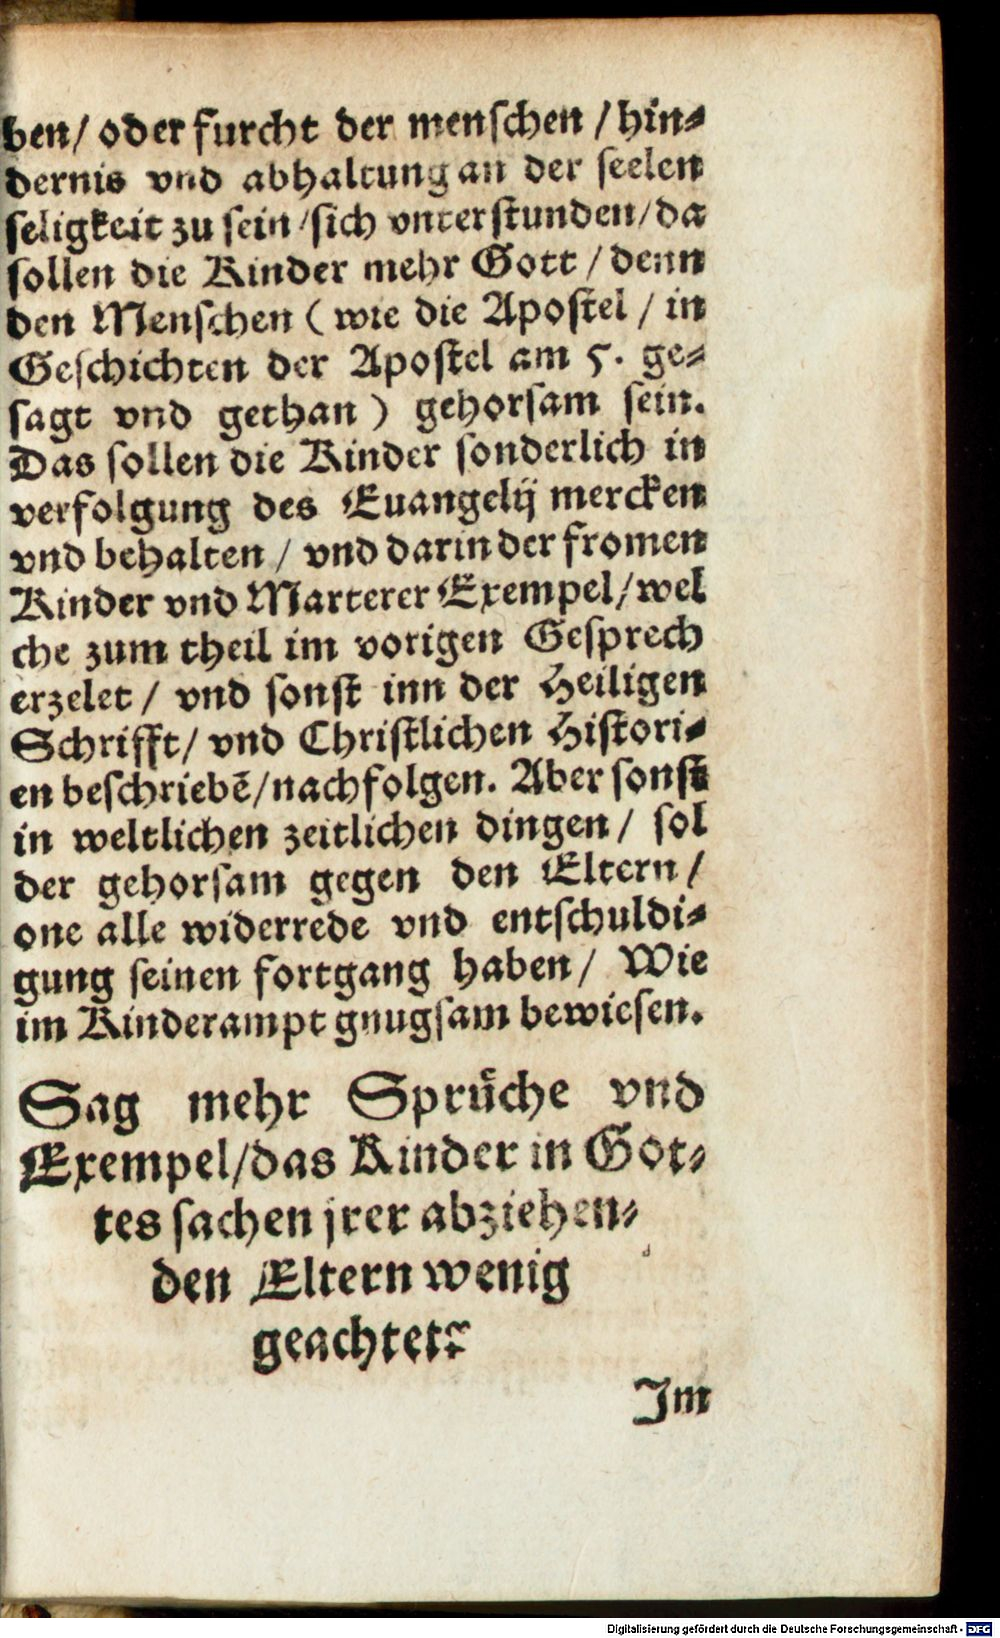 ben/ oder furcht der menschen / hin⸗
dernis vnd abhaltung an der seelen
seligkeit zu sein /sich vnterstunden/da
sollen die Kinder mehr Gott / denn
den Menschen ( wie die Apostel / in
Geschichten der Apostel am 5. ge⸗
sagt vnd gethan ) gehorsam sein.
Das sollen die Kinder sonderlich in
verfolgung des Euangelij mercken
vnd behalten / vnd darin der fromen
Kinder vnd Marterer Exempel/wel
che zum theil im vorigen Gesprech
erzelet / vnd sonst inn der Heiligen
Schrifft/ vnd Christlichen Histori⸗
en beschriebẽ/nachfolgen. Aber sonst
in weltlichen zeitlichen dingen / sol
der gehorsam gegen den Eltern /
one alle widerrede vnd entschuldi⸗
gung seinen fortgang haben / Wie
im Kinderampt gnugsam bewiesen.
Sag mehr Sprüche vnd
Exempel/das Kinder in Got⸗
tes sachen jrer abziehen⸗
den Eltern wenig
geachtet?
Im
Digitalisierung gefördert durch die Deutsche Forschungsgemeinschaft - DFG